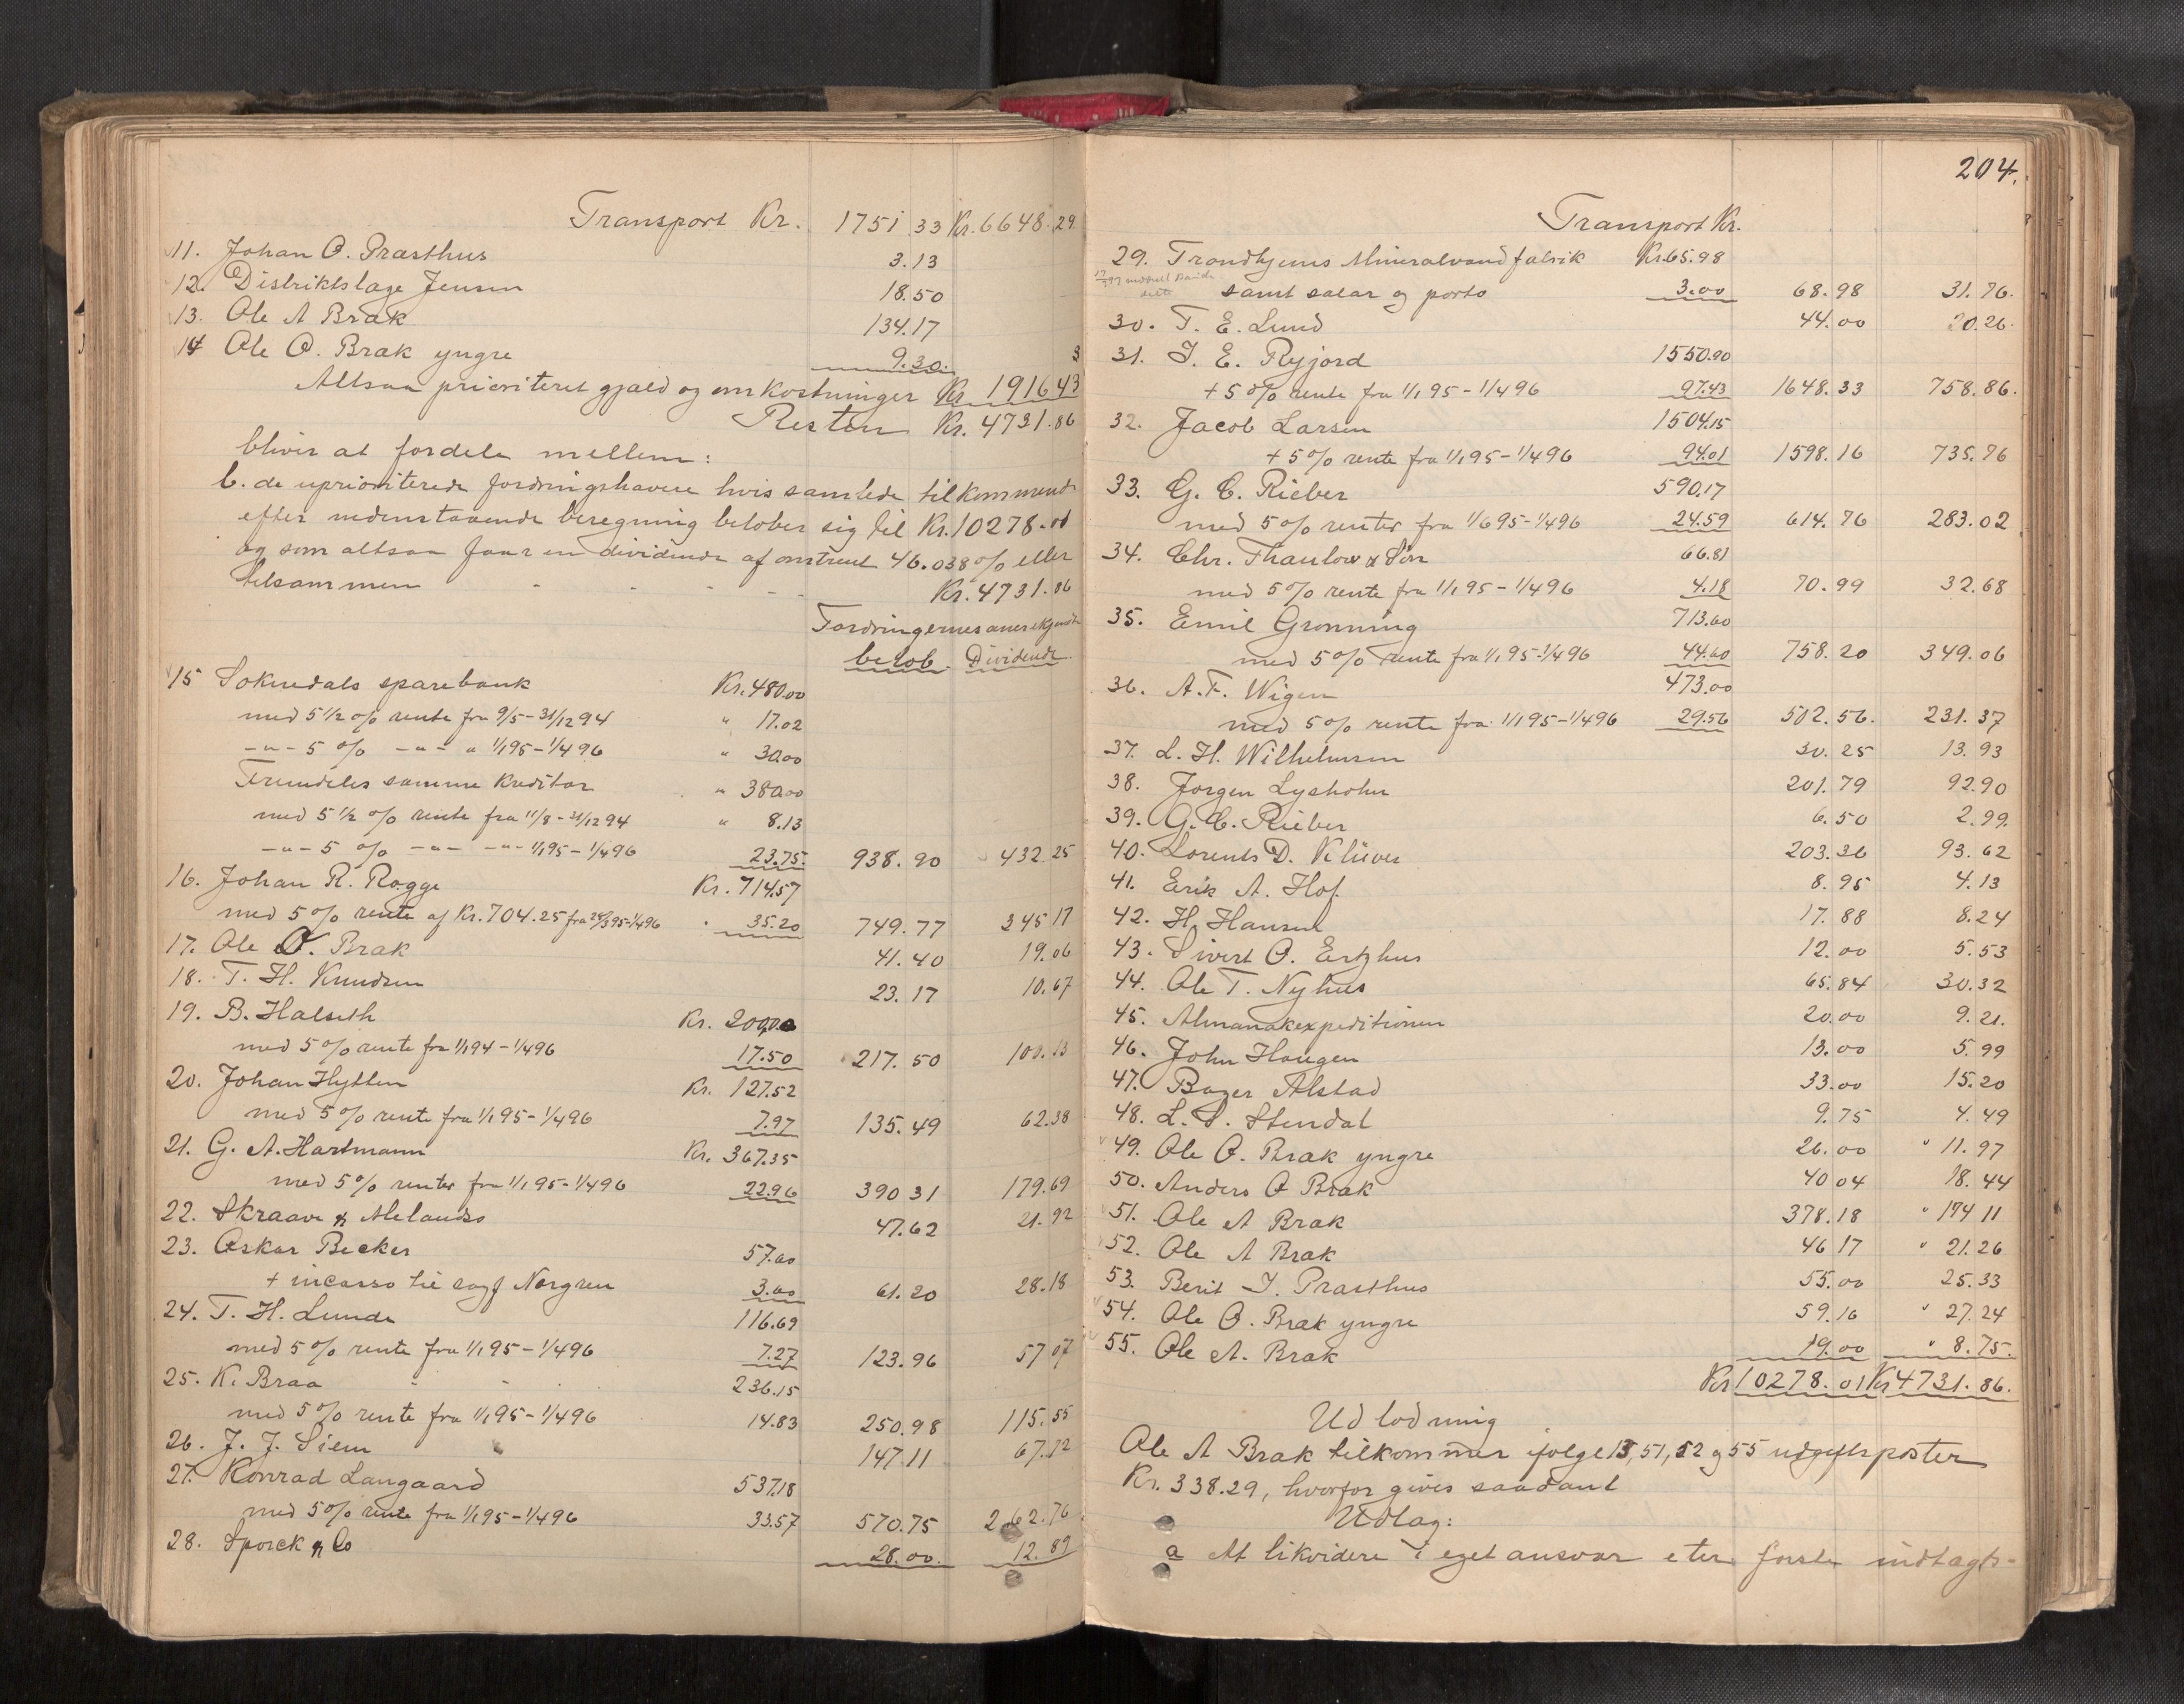 Transport Kr. 1751 33 Kr. 6648.29
11. Johan O. Præsthus 3.13
12. Distriktslæge Jensen 18.50
13. Ole A Bræk 134.17
14 Ole O. Bræk yngre 9.30.
Altsaa prioriteret gjæld og omkostninger Kr. 1916 43
Resten Kr. 4731.86
blivir at fordele mellem:
b. de uprioriterede fordringshavere hvis samlede tilkommende
efter nedenstaaende beregning beløber sig til Kr. 10278.01
og som altsaa faar en dividende af omtrent 46.038% eller
tilsammen - - - - Kr. 4731.86
Fordringernes anerkjendte
beløb. Dividende.
15 Soknedals sparebank Kr. 480.00
med 5 1/2 % rente fra 9/5 - 31/12 94 " 17.02
-"- 5 % -"- " 1/1 95 - 1/4 96 " 30.00
Fremdeles samme kreditor " 380.00
med 5 1/2 % rente fra 11/8 - 31/12 94 " 8.13
-"- 5 % -"- -"- 1/1 95 - 1/4 96 23.75. 938.90 432.25
16. Johan R. Rogge Kr. 714.57
med 5 % rente af Kr. 704.25 fra 29/3 95 - 1/4 96 35.20 749.77 345 17
17. Ole O. Bræk 41.40 19.06
18. T. H. Knudsen 23.17 10.67
19. B. Halseth Kr. 200.00
med 5 % rente fra 1/1 94 - 1/4 96 17.50 217.50 100.13
20. Johan Hytten Kr. 127.52
med 5 % rente fra 1/1 95 - 1/4 96 7.97 135.49 62.38
21. G. A. Hartmann Kr. 367.35
med 5 % renter fra 1/1 95 - 1/4 96 22.96 390 31 179.69
22. Skraave & Melandsø 47.62 21.92
23. Oskar Becker 57.60
+ incasso til sagf Norgren 3.60 61.20 28.18
24. T. H. Lunde 116.69
med 5 % rente fra 1/1 95 - 1/4 96 7.27 123.96 57 07
25. K. Braa - - 236.15
med 5 % rente fra 1/1 95 - 1/4 96 14.83 250.98 115.55
26. J. J. Siem 147.11 67.72
27. Konrad Langaard 537.18
med 5 % rente fra 1/1 95 - 1/4 96 33.57 570.75 262.76
28. Sporck & Co 28.00. 12.89
204.
Transport Kr.
29. Trondhjems Mineralvandfabrik Kr. 65.98
samt salær og porto 3.00 68.98 31.76.
30. T. E. Lund 44.00 20.26.
31. I. E. Ryjord 1550.90
+ 5 % rente fra 1/1 95 - 1/4 96 97.43 1648.33 758.86.
32. Jacob Larsen 1504.15
+ 5 % rente fra 1/1 95 - 1/4 96 94.01 1598.16 735.76
33. G. C. Rieber 590.17
med 5 % renter fra 1/6 95 - 1/4 96 24.59 614.76 283.02
34. Chr. Thaulow & Søn 66.81
med 5 % rente fra 1/1 95 - 1/4 96 4.18 70.99 32.68
35. Emil Grønning 713.60
med 5 % rente fra 1/1 95 - 1/4 96 44.60 758.20 349.06
36. A. F. Wigen 473.00
med 5 % rente fra 1/1 95 - 1/4 96 29.56 502.56. 231.37
37. L. H. Wilhelmsen 30.25 13.93
38. Jørgen Lysholm 201.79 92.90
39. G. C. Rieber 6.50 2.99.
40. Lorents D. Klüver 203.36 93.62
41. Erik A. Hof. 8.95 4.13
42. H. Hansen 17.88 8.24
43. Sivert O. Ertzhus 12.00 5.53
44. Ole T. Nyhus 65.84 30.32
45. Almanakexpeditionen 20.00 9.21.
46. John Haugen 13.00 5.99
47. Bager Alstad 33.00 15.20
48. L. S. Stendal 9.75 4.49
49. Ole O. Bræk yngre 26.00 " 11.97
50. Anders O Bræk 40 04 18.44
51. Ole A Bræk 378.18 " 174 11
52. Ole A Bræk 46 17 " 21.26
53. Berit I. Præsthus 55.00 25.33
54. Ole O. Bræk yngre 59.16 " 27.24
55. Ole A. Bræk 19.00 " 8.75.
Kr 10278.01 Kr 4731.86.
Udlodning
Ole A Bræk tilkommer ifølge 13, 51, 52 og 55 udgiftsposter
Kr. 338.29, hvorfor gives saadant
Udlæg:
a At likvidere i eget ansvar efter første indtægts-